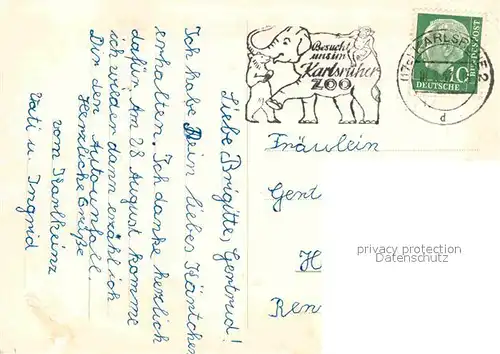 Liebe Brigitte, Gertrud!
Ich habe Dein liebes Kärtchen
erhalten. Ich danke herzlich
dafür. Am 28 August komme
ich wieder dann erzähl ich
Dir den Autounfall.
Herzliche Grüße
vom Karlheinz
Vati u. Ingrid
Besucht
unsern
Karlsruher
ZOO
(17a) KARLSRUHE 2
d
10
DEUTSCHE
BUNDESPOST
Fräulein
Gert
H
Ren
privacy protection
Datenschutz